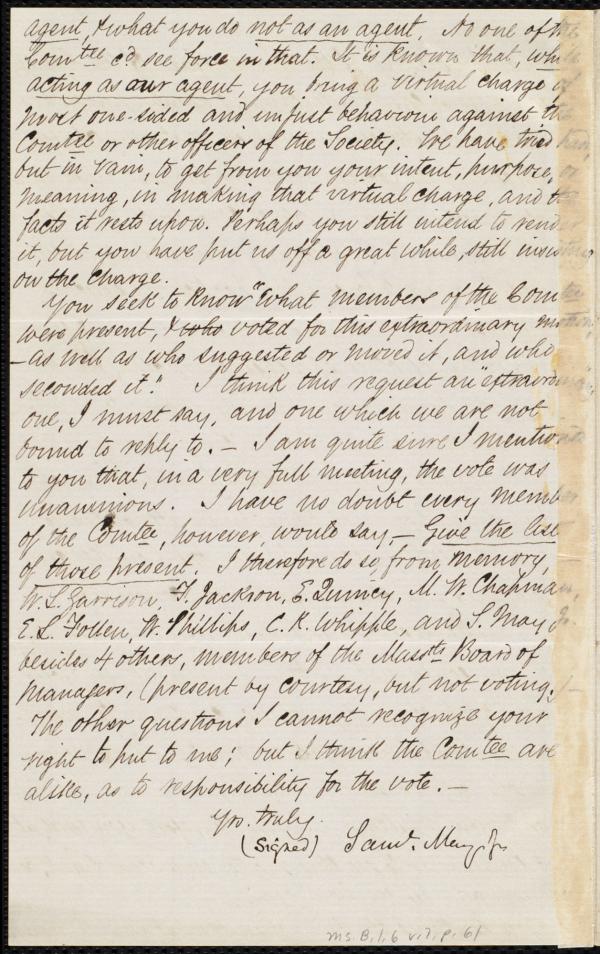 agent, & what you do not as an agent. No one of the
Comtee cd see force in that. It is known that, while
acting as our agent, you bring a virtual charge of
most one-sided and unjust behaviour against the
Comtee or other officers of the Society. We have tried hard,
but in vain, to get from you your intent, purpose, or
meaning, in making that virtual charge, and the
facts it rests upon. Perhaps you still intend to render
it, but you have put us off a great while, still insisting
on the charge.
You seek to know "What members of the Comtee
were present, & who voted for this extraordinary motion,
– as well as who suggested or moved it, and who
seconded it." I think this request an "extraordinary"
one, I must say, and one which we are not
bound to reply to. – I am quite sure I mentioned
to you that, in a very full meeting, the vote was
unanimous. I have no doubt every member
of the Comtee, however, would say – Give the list
of those present. I therefore do so from memory,
W. L. Garrison, F. Jackson, E. Quincy, M. W. Chapman,
E. L. Follen, W. Phillips, C. K. Whipple, and S. May Jr.
besides 4 others, members of the Massts Board of
Managers, (present by courtesy, but not voting.) –
The other questions I cannot recognize your
right to put to me; but I think the Comtee are
alike, as to responsibility for the vote. –
Yrs. truly.
(Signed) Saml. May, Jr.
Ms. B.1.6 v.7, p.61